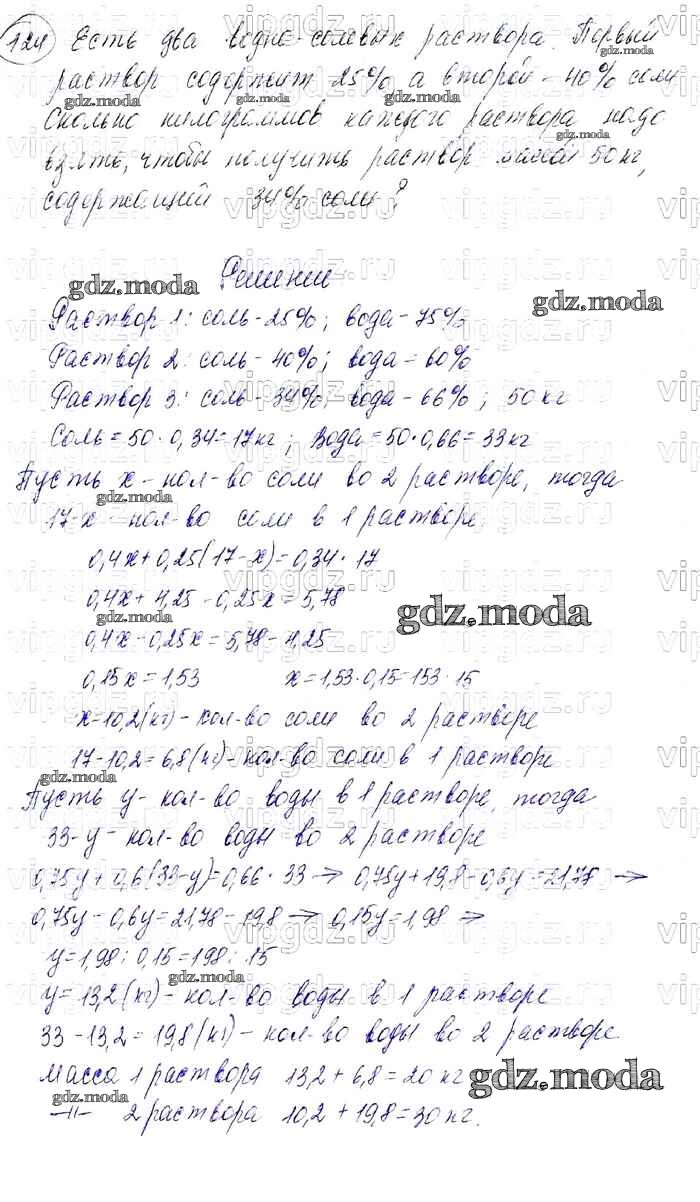 124 Есть два водно-солевых раствора. Первый
раствор содержит 25% а второй - 40% соли
Сколько килограммов каждого раствора надо
взять, чтобы получить раствор массой 50 кг,
содержащий 34% соли?
Решение
gdz.moda
Раствор 1: соль - 25%; вода - 75%
Раствор 2: соль - 40%; вода - 60%
Раствор 3: соль - 34%; вода - 66%; 50 кг
Соль = 50 · 0,34 = 17 кг; Вода = 50 · 0,66 = 33 кг
Пусть x - кол-во соли во 2 растворе, тогда
17-x - кол-во соли в 1 растворе
0,4x + 0,25(17-x) = 0,34 · 17
0,4x + 4,25 - 0,25x = 5,78
0,4x - 0,25x = 5,78 - 4,25
gdz.moda
0,15x = 1,53 x = 1,53 · 0,15 = 153 · 15
x = 10,2 (кг) - кол-во соли во 2 растворе
17 - 10,2 = 6,8 (кг) - кол-во соли в 1 растворе
Пусть y - кол-во воды в 1 растворе, тогда
33-y - кол-во воды во 2 растворе
0,75y + 0,6(33-y) = 0,66 · 33 → 0,75y + 19,8 - 0,6y = 21,78 →
0,75y - 0,6y = 21,78 - 19,8 → 0,15y = 1,98 →
y = 1,98 : 0,15 = 198 : 15
y = 13,2 (кг) - кол-во воды в 1 растворе
33 - 13,2 = 19,8 (кг) - кол-во воды во 2 растворе
Масса 1 раствора 13,2 + 6,8 = 20 кг
gdz.moda
-||- 2 раствора 10,2 + 19,8 = 30 кг.